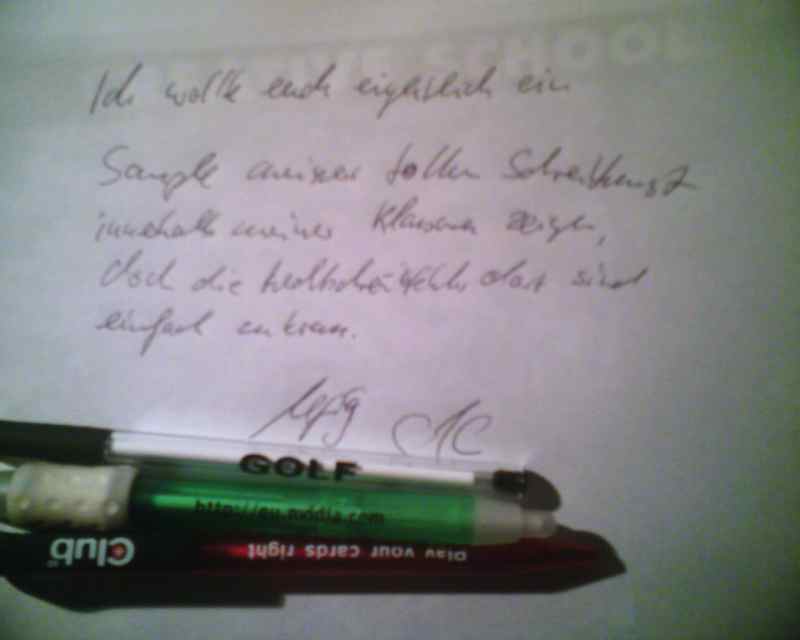 SCHOOL
Ich wollte euch eigentlich ein
Sample meiner tollen Schreibkunst
innerhalb meiner Klausuren zeigen,
doch die Rechtschreibfehler dort sind
einfach zu krass.
GOLF
http://eu.nvidia.com
Club
Play your cards right